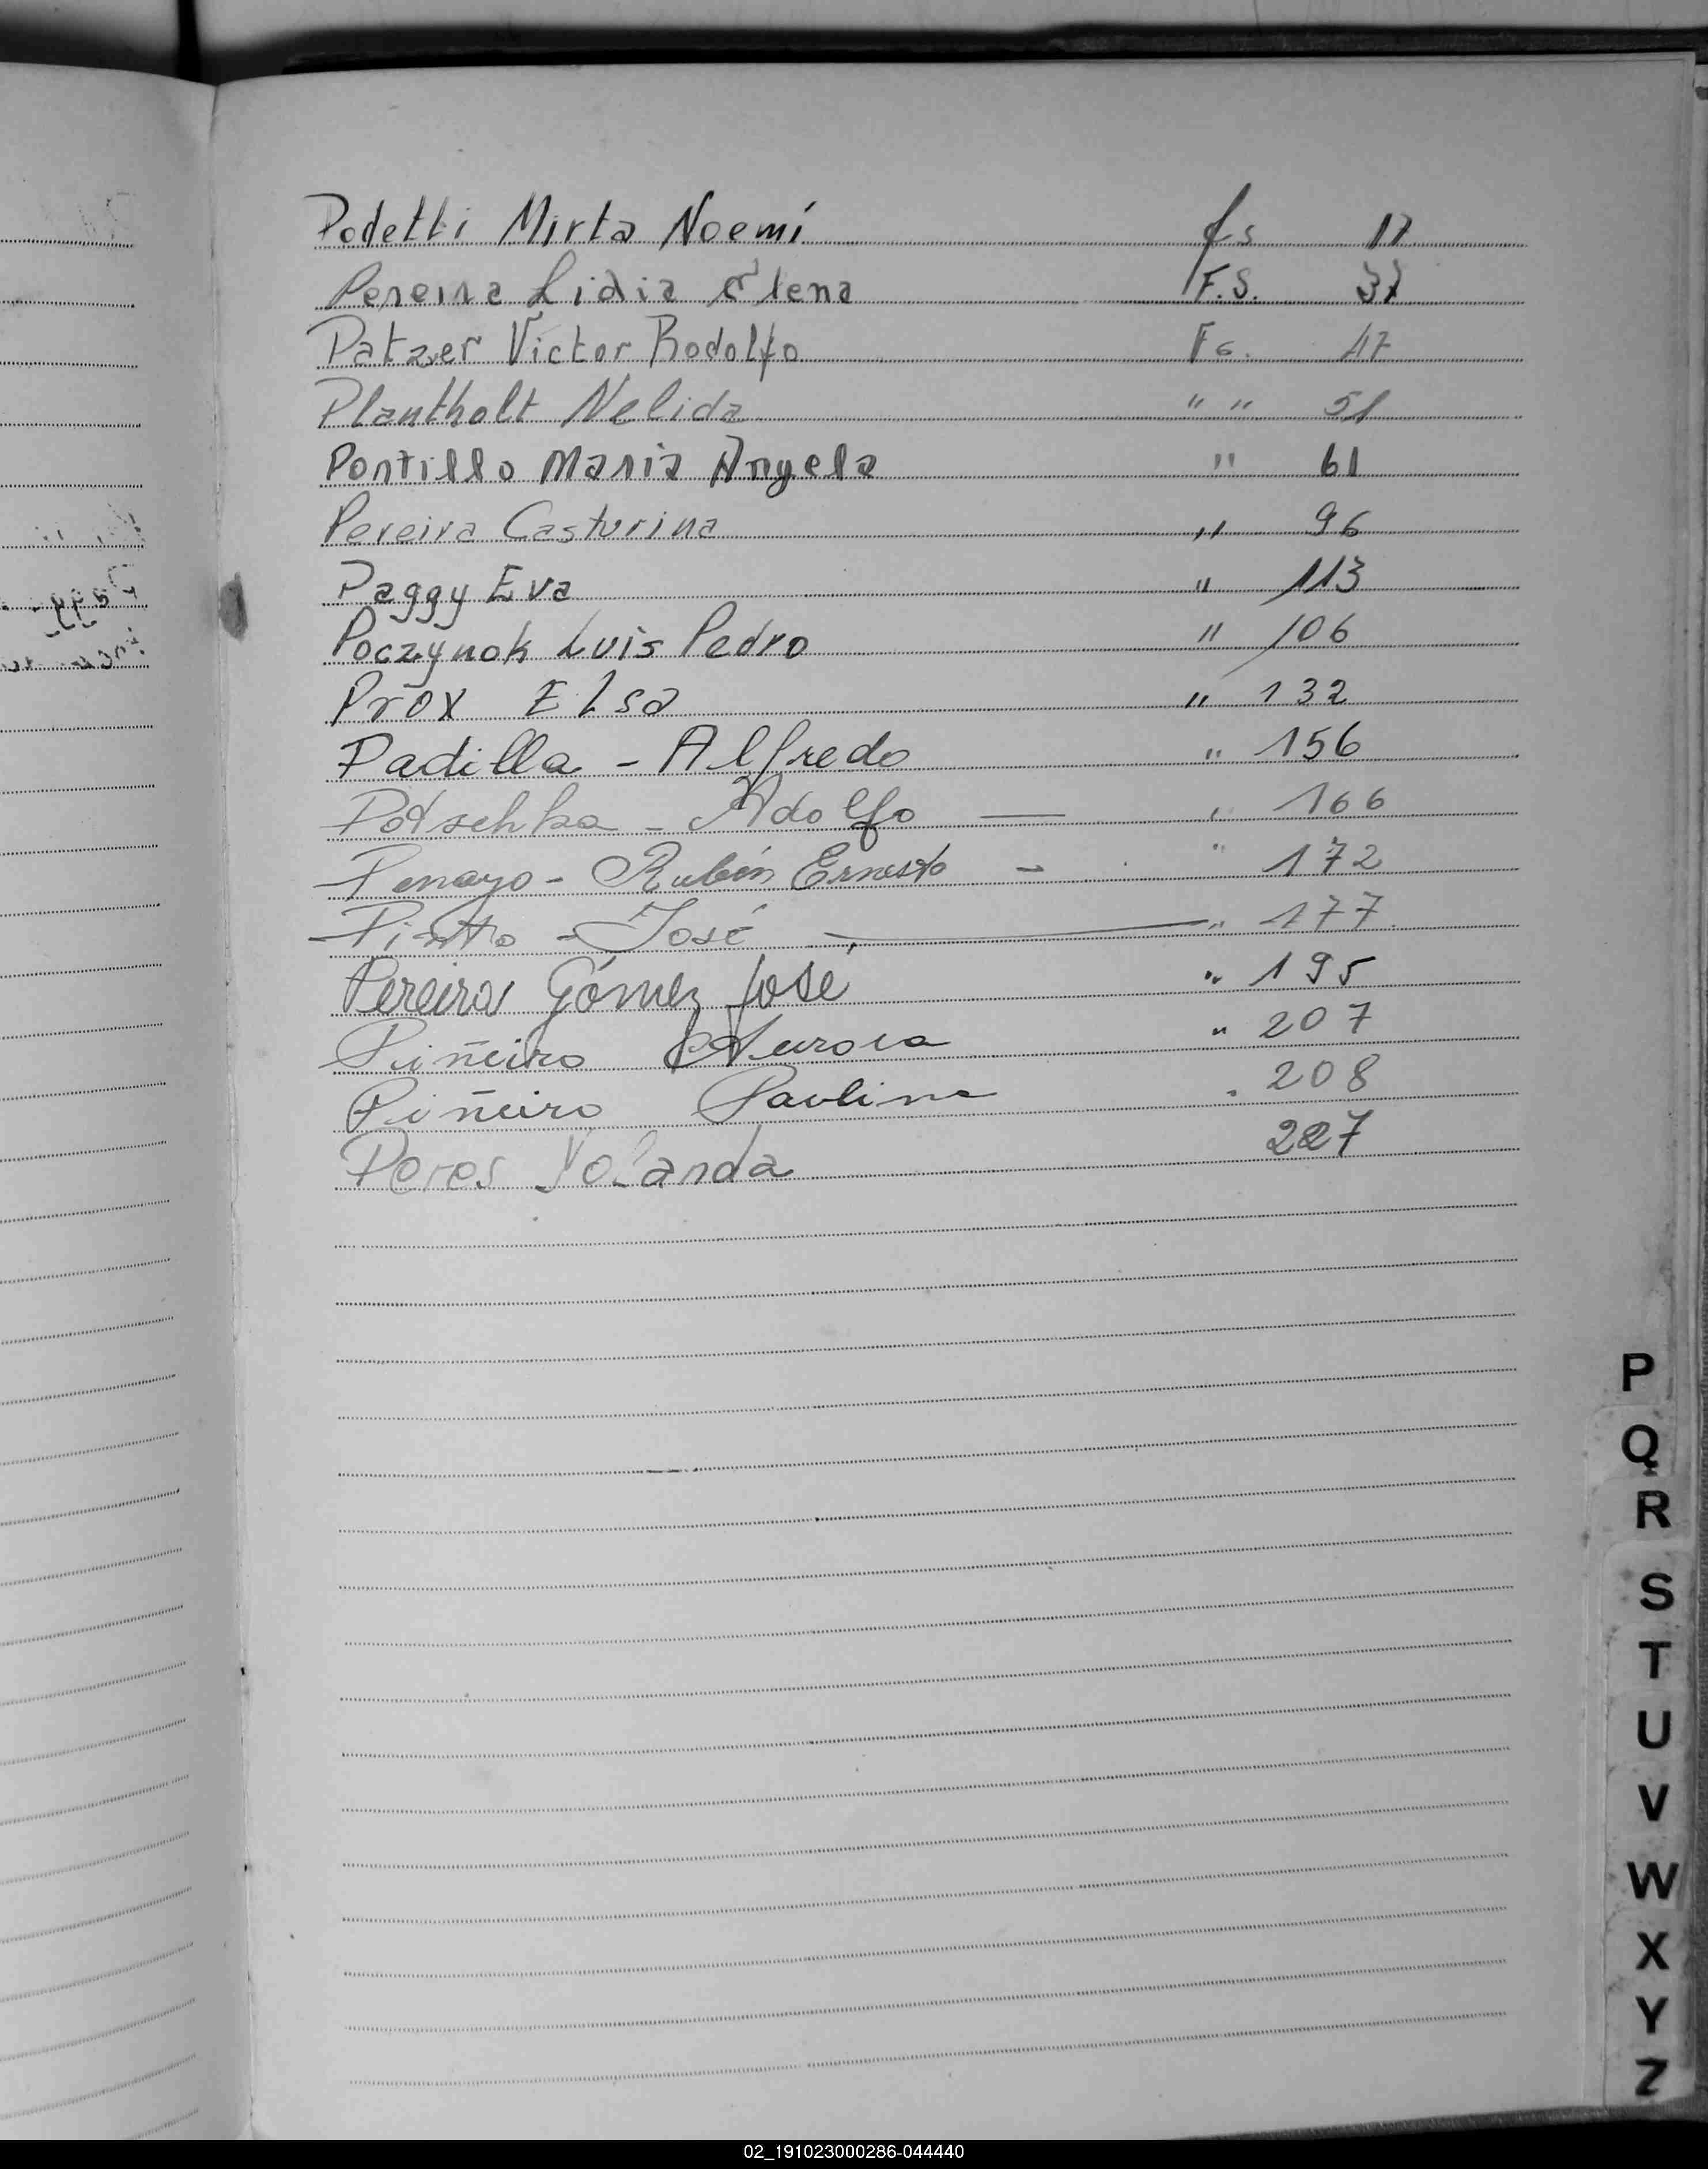 Podetti Mirta Noemí fs 17
Pereira Lidia Elena F.S. 37
Patzer Victor Rodolfo Fs. 47
Plantholt Nelida " " 51
Portillo Maria Angela " 61
Pereira Casturina " 96
Paggy Eva " 113
Poczynok Luis Pedro " 106
Prox Elsa " 132
Padilla - Alfredo " 156
Potschka - Adolfo — " 166
Penayo - Rubén Ernesto - " 172
Pintto - José — " 177
Pereira Gómez José " 195
Piñeiro Aurora " 207
Piñeiro Paulina " 208
Peres Yolanda 227
P
Q
R
S
T
U
V
W
X
Y
Z
02_191023000286-044440